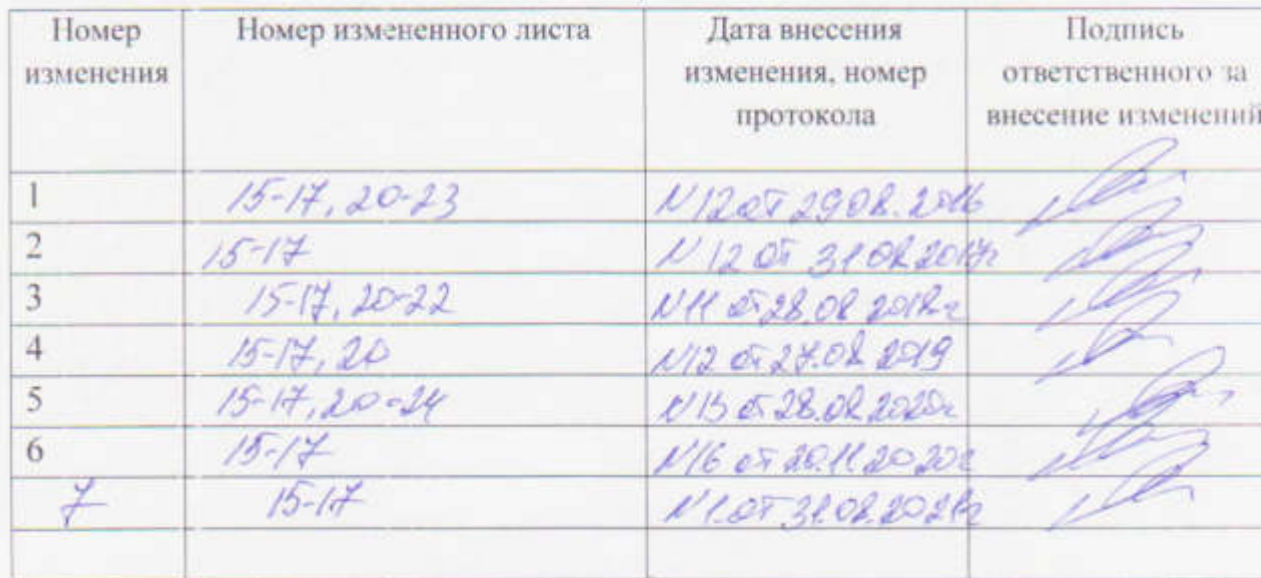 Номер изменения Номер измененного листа Дата внесения изменения, номер протокола Подпись ответственного за внесение изменений
1 15-17, 20-23 N12 от 29.08.2016
2 15-17 N12 от 31.08.2017г
3 15-17, 20-22 N11 от 28.08.2018г
4 15-17, 20 N12 от 27.08.2019
5 15-17, 20-24 от 28.08.2020г
6 15-17 N16 от 20.11.2020г
7 15-17 N1 от 31.08.2021г